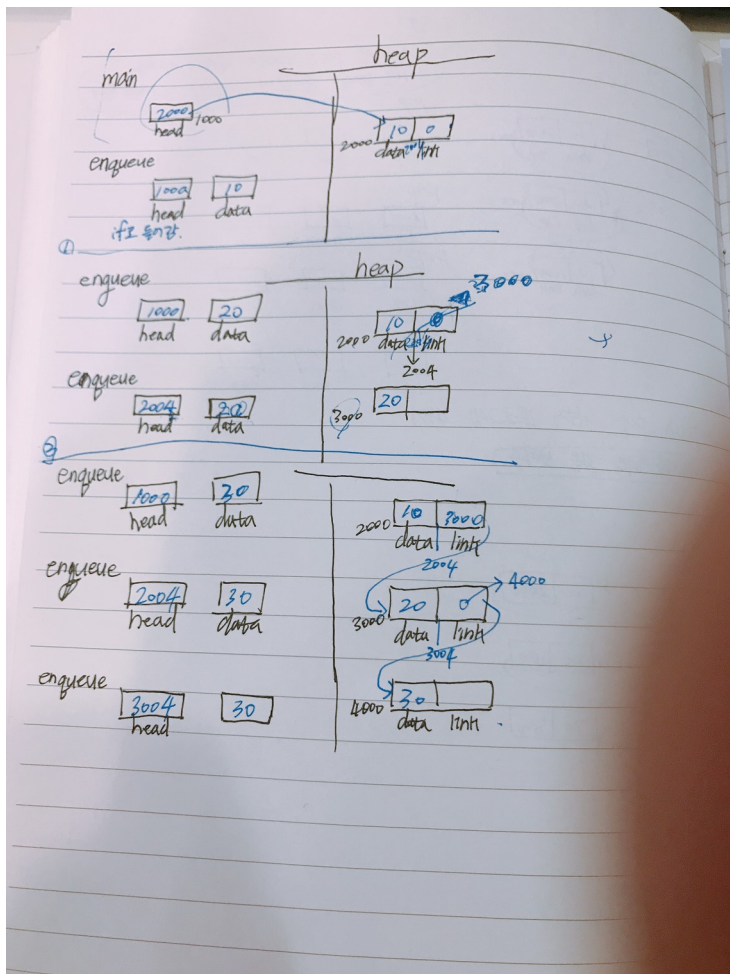 heap
main
2000 1000
head
10 0
2000 data 2004 link
enqueue
1000 10
head data
if로 들어감.
①
enqueue heap
1000 20
head data
3000
10
2000 data link
2004
enqueue
2004 20
head data
20
3000
②
enqueue
1000 30
head data
10 3000
2000 data link
2004
enqueue
2004 30
head data
20 0 4000
3000 data link
3004
enqueue
3004 30
head
30
4000 data link